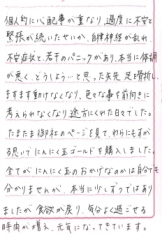 個人的に心配事が重なり、過度に不安と
緊張が続いたせいか、自律神経が乱れ
不安症状と、若干のパニックがあり、本当に体調
が悪く、どうしよう…と思った矢先、足を骨折し、
ますます動けなくなり、色々な事を前向きに
考えられなくなり途方にくれた日々でした。
たまたま御社のページを見て、わらにもすが
る思いでにんにく玉ゴールドを購入しました。
全てがにんにく玉のおかげなのかは自分でも
分かりませんが、本当にりしずつではあり
ましたが食欲が戻り、気分よく過ごせる
時間が増え、元気になってきています。